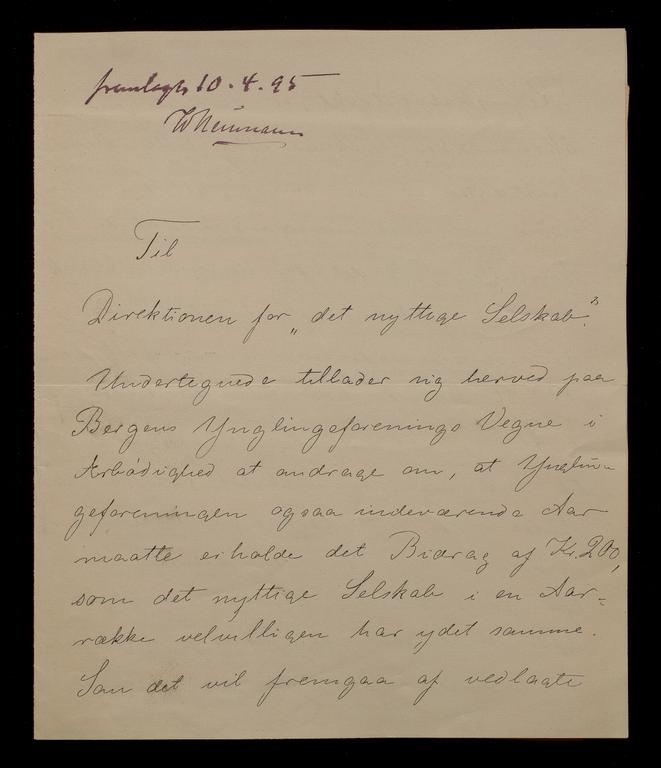 fremlagt 10.4.95
WNeumann
Til
Direktionen for „det nyttige Selskab".
Undertegnede tillader sig herved paa
Bergens Ynglingeforenings Vegne i
Ærbödighed at andrage om, at Ynglin-
geforeningen ogsaa indeværende Aar
maatte erholde det Bidrag af Kr. 200,
som det nyttige Selskab i en Aar=
række velvilligen har ydet samme.
Som det vil fremgaa af vedlagte